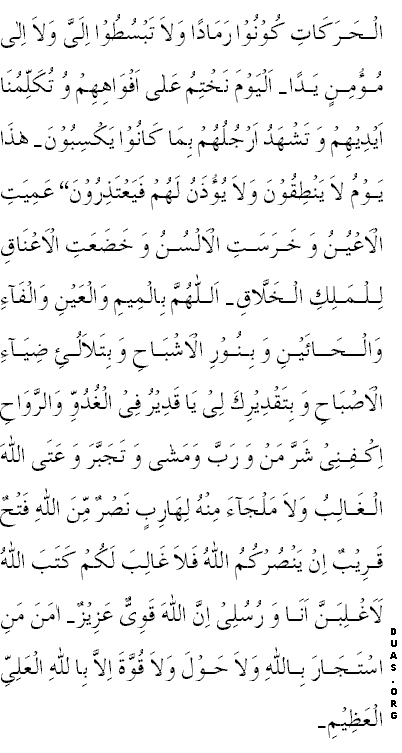 الْحَرَكَاتِ كُوْنُوْا رَمَادًا وَلاَ تَبْسُطُوْا اِلَىَّ وَلاَ اِلٰى
مُؤْمِنٍ يَدًا۔ اَلْيَوْمَ نَخْتِمُ عَلٰى اَفْوَاهِهِمْ وُ تُكَلِّمُنَا
اَيْدِيْهِمْ وَ تَشْهَدُ اَرْجُلُهُمْ بِمَا كَانُوْا يَكْسِبُوْنَ۔ هٰذَا
يَوْمُ لاَ يَنْطِقُوْنَ وَلاَ يُؤْذَنُ لَهُمْ فَيَعْتَذِرُوْنَ“ عَمِيَتِ
الْاَعْيُنُ وَ خَرَسَتِ الْاَلْسُنُ وَ خَضَعَتِ الْاَعْنَاقِ
لِلْمَلِكِ الْخَلَّاقِ۔ اَللّٰهُمَّ بِالْمِيمِ وَالْعَيْنِ وَالْفَآءِ
وَالْحَائَيْنِ وَ بِنُوْرِ الْاَشْبَاحِ وَ بِتَلَالُئِ ضِيَآءِ
الْاَصْبَاحِ وَ بِتَقْدِيْرِكَ لِىْ يَا قَدِيْرُ فِىْ الْغُدُوِّ وَالرَّوَاحِ
اِكْفِنِىْ شَرَّ مَنْ وَ رَبَّ وَمَشٰى وَ تَجَبَّرَ وَ عَتَى اللّٰهَ
الْغَالِبُ وَلاَ مَلْجَآءَ مِنْهُ لِهَارِبٍ نَصْرٌ مِّنَ اللّٰهِ فَتْحٌ
قَرِيْبٌ اِنْ يَنْصُرْكُمُ اللّٰهُ فَلاَ غَالِبَ لَكُمْ كَتَبَ اللّٰهُ
لَاَغْلِبَنَّ اَنَا وَ رُسُلِىْ اِنَّ اللّٰهَ قَوِىٌّ عَزِيْزٌ۔ امَنَ مَنِ
اسْتَجَارَ بِاللّٰهِ وَلاَ حَوْلَ وَلاَ قُوَّةَ اِلاَّ بِا للّٰهِ الْعَلِىِّ
الْعَظِيْمِ۔
DUAS.ORG